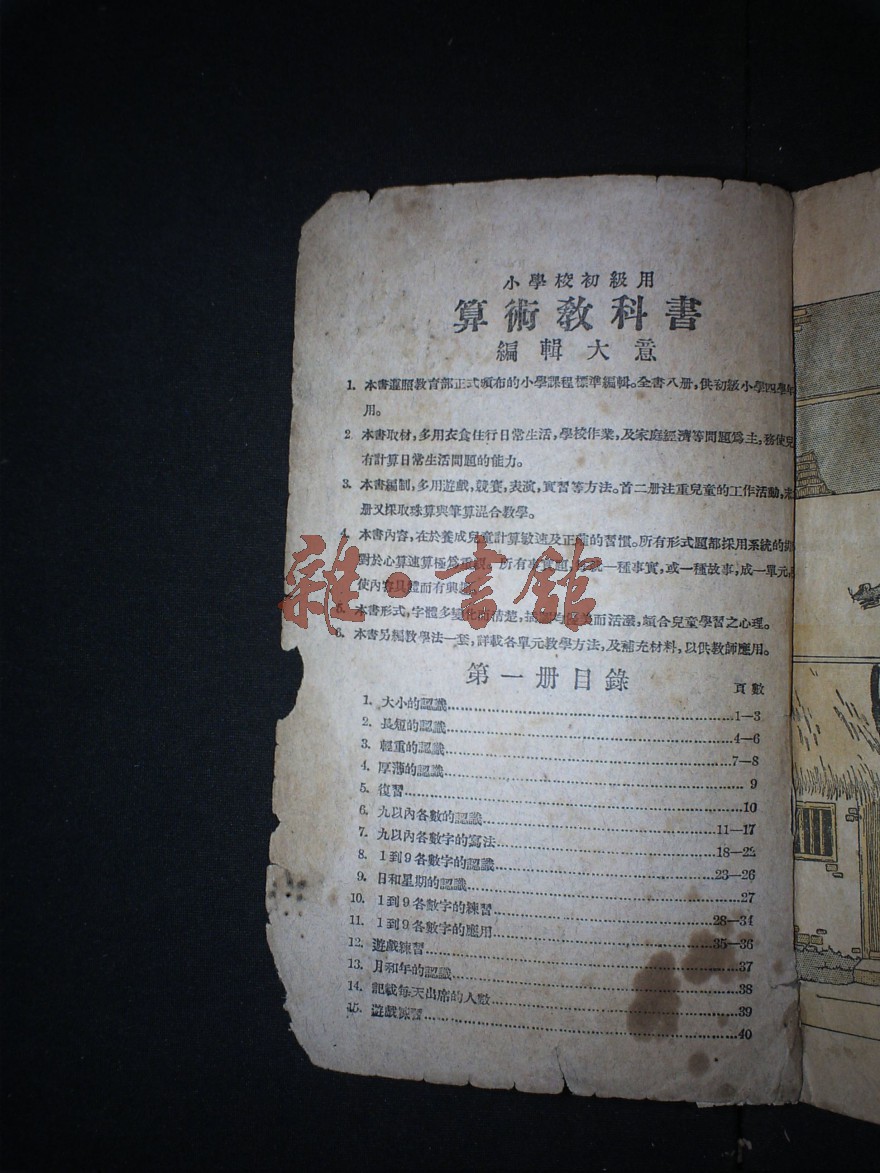 小學校初級用
算術教科書
編輯大意
1. 本書遵照教育部正式頒布的小學課程標準編輯。全書八册,供初級小學四學年
用。
2. 本書取材,多用衣食住行日常生活,學校作業,及家庭經濟等問題爲主,務使兒
有計算日常生活問題的能力。
3. 本書編制,多用遊戲,競賽,表演,實習等方法。首二册注重兒童的工作活動,
册又採取珠算與筆算混合教學。
4. 本書內容,在於養成兒童計算敏速及正確的習慣。所有形式題都採用系統的
對於心算速算極爲重視。所有事實題,每就一種事實,或一種故事,成一單元,
使內容具體而有興趣。
5. 本書形式,字體多變化而清楚,美而活潑,頗合兒童學習之心理。
6. 本書另編教學法一套,詳載各單元教學方法,及補充材料,以供教師應用。
雜·書館
第一册目錄
頁數
1. 大小的認識……1—3
2. 長短的認識……4—6
3. 輕重的認識……7—8
4. 厚薄的認識……9
5. 復習……10
6. 九以內各數的認識……11—17
7. 九以內各數字的寫法……18—22
8. 1到9各數字的認識……23—26
9. 日和星期的認識……27
10. 1到9各數字的練習……28—34
11. 1到9各數字的應用……35—36
12. 遊戲練習……37
13. 月和年的認識……38
14. 記載每天出席的人數……39
15. 遊戲練習……40